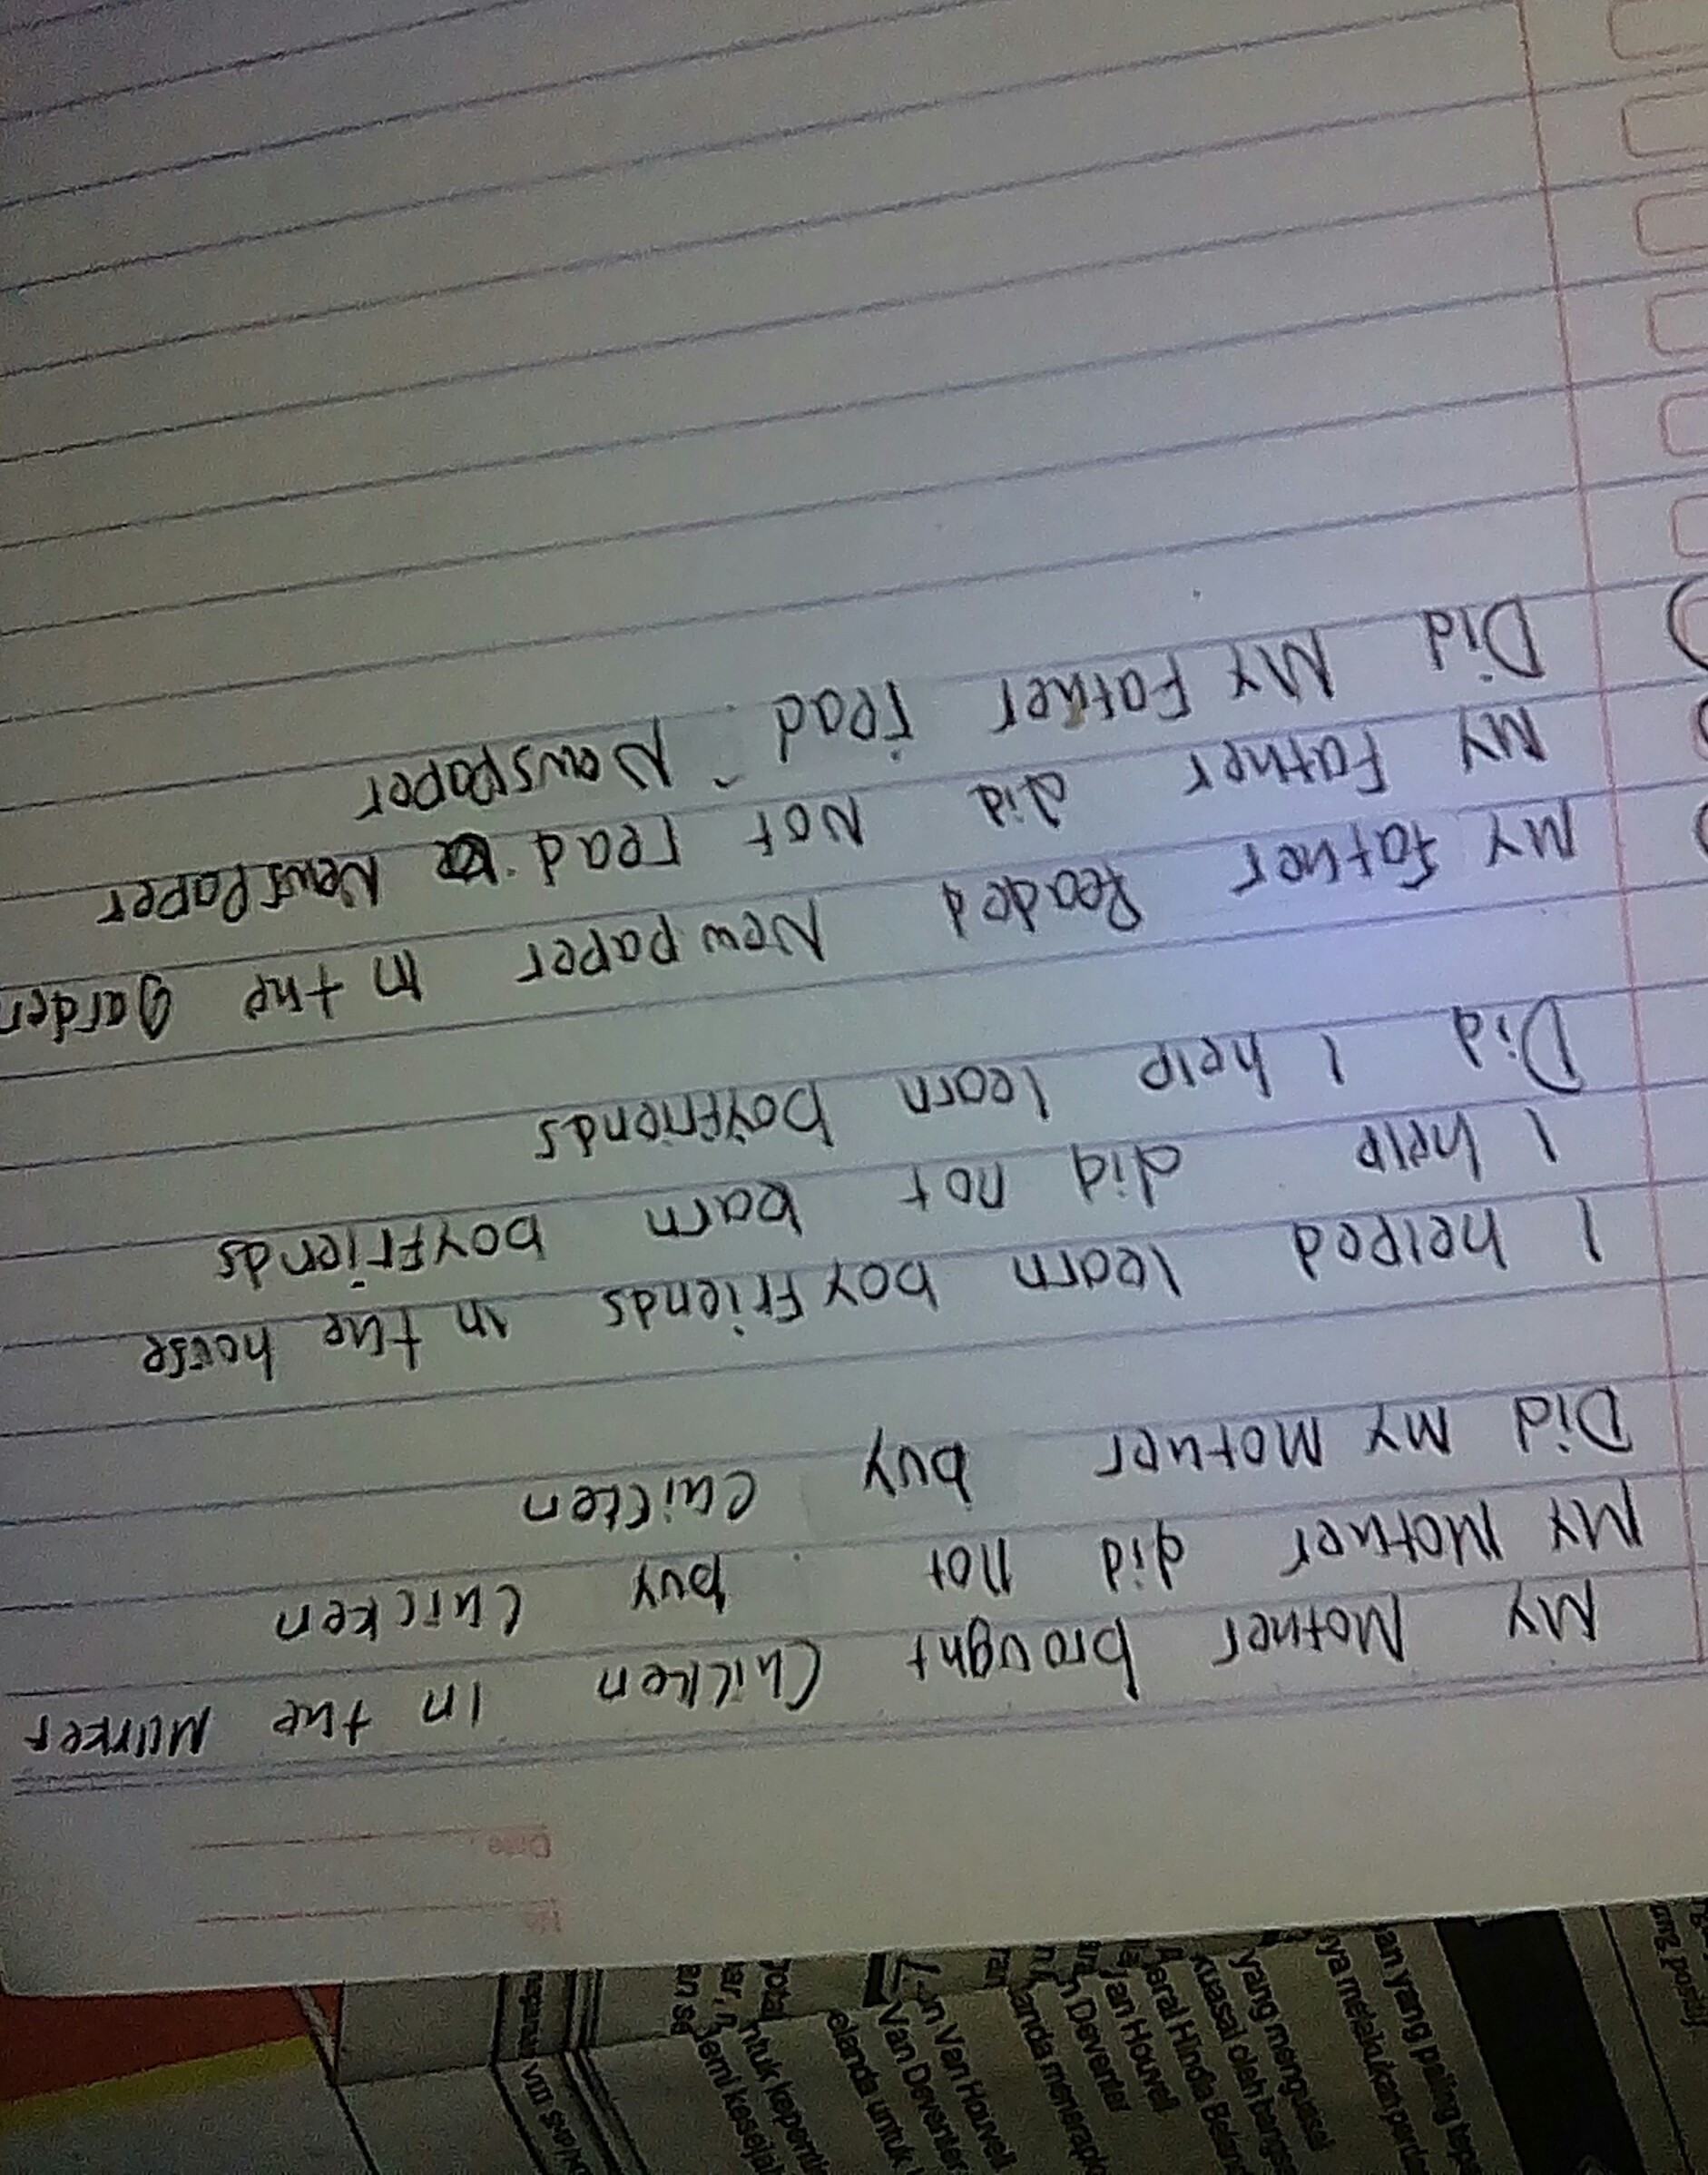 No
Date
My Mother brought Chicken in the Marker
My Mother did not buy chicken
Did my Mother buy chicken
I helped learn boyfriends in the house
I help did not learn boyfriends
Did I help learn boyfriends
My father Readed New paper in the garden
My Father did not read Newspaper
Did My Father read Newspaper
an yang paling
ya melakukan
yang menguasai
kuasai oleh bangs
eral Hindia Belan
Jan Houvell
n Deventer
landa menerapk
n Van Houvell
Van Deventer
elanda untuk
ntuk kepenti
demi kesejah
VIII SMP/